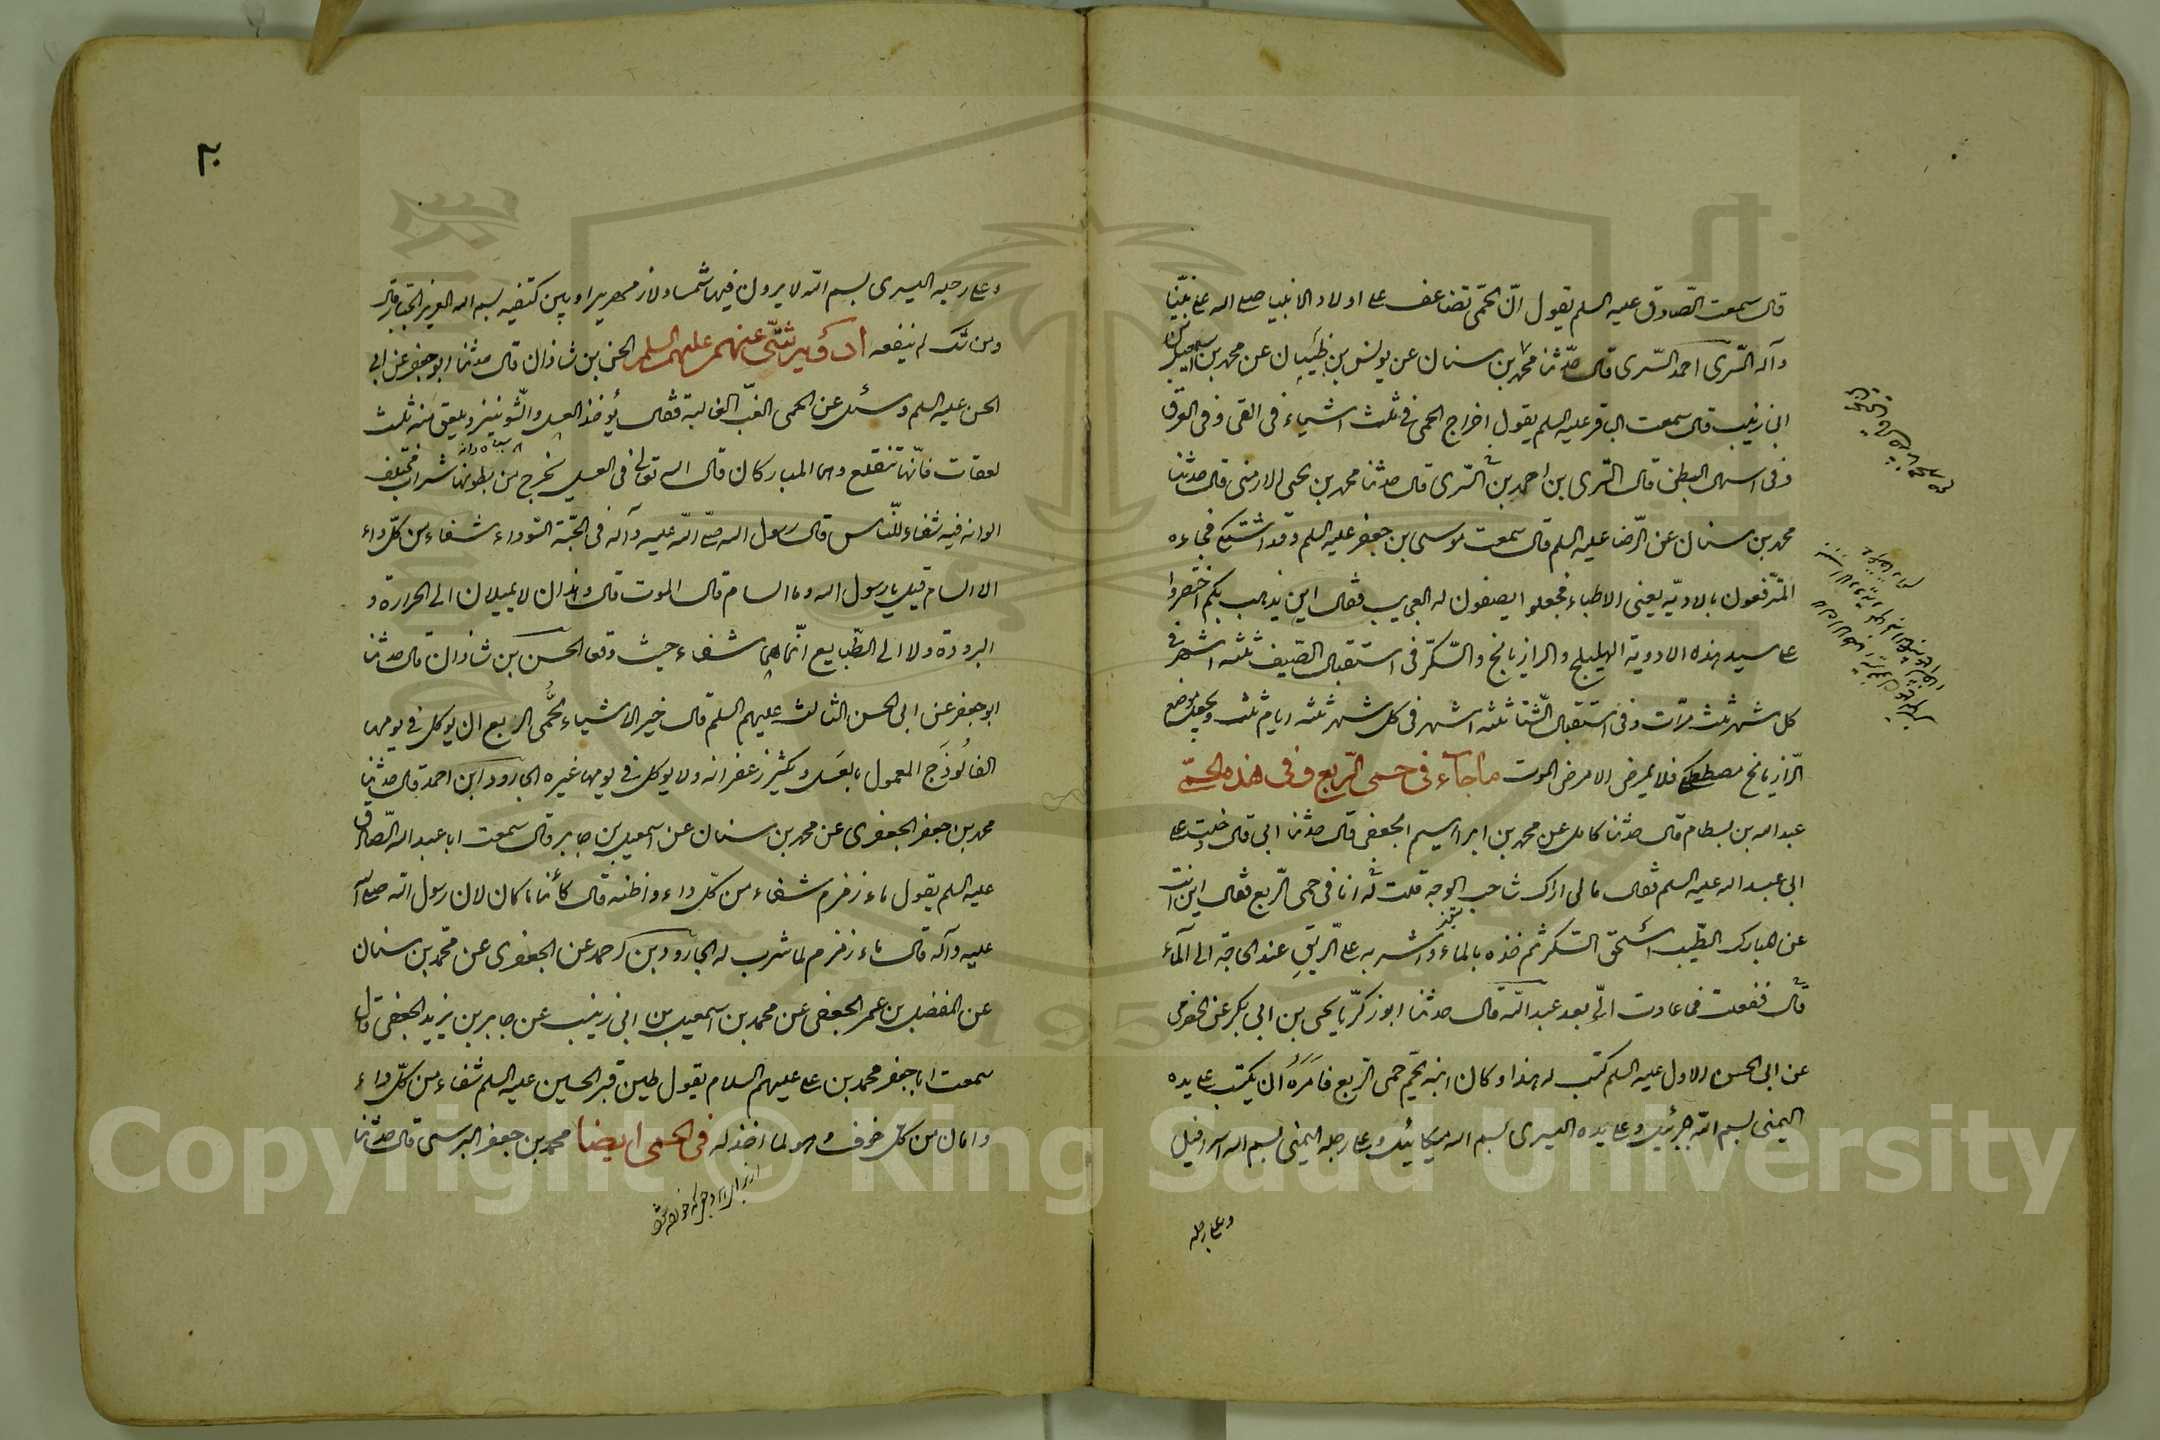 قال سمعت الصّادق عليه السلم يقول انّ الحمّى تضاعف على اولاد الانبيا صلى الله على نبيّنا
وآله السّرى احمد السّرى قال حدّثنا محمّد بن سنان عن يونس بن ظبيان عن محمد بن اسمعيل بن
ابى زينب قال سمعت الباقر عليه السلم يقول اخراج الحمى فى ثلث اشياء فى القى وفى العرق
وفى اسهال البطن قال السّرى بن احمد بن السّرى قال حدثنا محمد بن يحيى الارمنى قال حدثنا
محمد بن سنان عن الرّضا عليه السلم قال سمعت موسى بن جعفر عليه السلم وقد اشتكى فجاءه
المترّفعون بالادويّه يعنى الاطباء فجعلوا يصفون له العجايب فقال اين يذهب بكم اختصروا
على سيد هذه الادوية الهليلج والرازيانج والسّكر فى استقبال الصّيف ثلثه اشهر فى
كل شهر ثلث مرّات وفى استقبال الشّتا ثلثه اشهر فى كل شهر ثلثه ايام ثلث ويجعل موضع
الرّازيانج مصطكى فلا يمرض الا مرض الموت ما جاء فى حمى الرّبع وفى هذه الحمّى
عبد الله بن بسطام قال حدثنا كامل عن محمد بن ابراهيم الجعفى قال حدثنا ابى قال دخلت على
ابى عبد الله عليه السلم فقال ما لى اراك شاحب الوجه قلت له انا فى حمى الرّبع فقال اين انت
عن المبارك الطّيب اسحق السّكر ثم خذه بالماء واشربه على الرّيق عند الحاجة الى الماء
قال ففعلت فما عادت الىّ بعد عبد الله قال حدثنا ابو زكرّيا يحيى بن ابى بكر عن الحضرمى
عن ابى الحسن الاول عليه السلم كتب له هذا وكان ابنه يحّم حمى الرّبع فامره ان يكتب على يده
اليمنى بسم الله جبرئيل وعلى يده اليسرى بسم الله ميكائيل وعلى رجله اليمنى بسم الله اسرافيل
وعلى رجله
٢٠
وعلى رجله اليسرى بسم الله لا يرون فيها شمسا ولا زمهريرا وبين كتفيه بسم الله العزيز الجبار قال
ومن شك لم ينفعه ادوية شتّى عنهم عليهم السلم الحسن بن شاذان قال حدثنا ابو جعفر عن ابى
الحسن عليه السلم وسئل عن الحمى الغبّ الغالبة فقال يؤخذ العسل والشّونيز ويلعق منه ثلث
لعقات فانّها تنقلع وهما المباركان قال الله تعالى فى العسل يخرج من بطونها شراب مختلف
الوانه فيه شفاء للنّاس قال رسول الله صلى الله عليه وآله فى الحبّة السّوداء شفاء من كلّ داء
الا السام قيل يا رسول الله وما السام قال الموت قال وهذان لا يميلان الى الحرارة و
البرودة ولا الى الطّبايع انّما هما شفاء حيث وقعا الحسن بن شاذان قال حدثنا
ابو جعفر عن ابى الحسن الثالث عليهم السلم قال خير الاشياء لحمّى الرّبع ان يوكل فى يومها
الفالوذج المعمول بالعسل ويكثر زعفرانه ولا يوكل فى يومها غيره الجارود ابن احمد قال حدثنا
محمد بن جعفر الجعفرى عن محمد بن سنان عن اسمعيل بن جابر قال سمعت ابا عبد الله الصّادق
عليه السلم يقول ماء زمزم شفاء من كلّ داء واظنه قال كائنا ما كان لان رسول الله صلى الله
عليه وآله قال ماء زمزم لما شرب له الجارود بن احمد عن الجعفرى عن محمّد بن سنان
عن المفضل بن عمر الجعفى عن محمد بن اسمعيل بن ابى زينب عن جابر بن يزيد الجعفى قال
سمعت ابا جعفر محمد بن على عليهم السلام يقول طين قبر الحسين عليه السلم شفاء من كلّ داء
وامان من كلّ خوف وهو لما اخذ له فى الحمى ايضا محمد بن جعفر البرسى قال حدّثنا